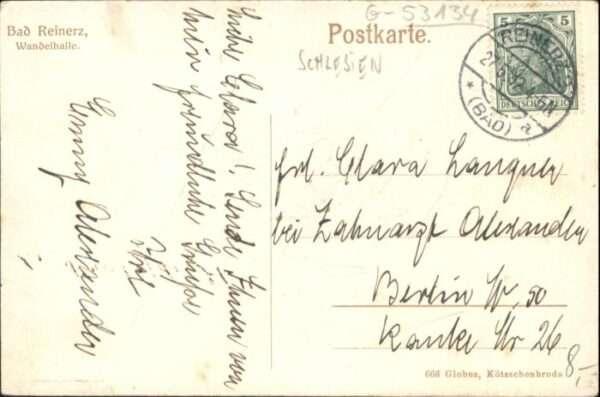 Bad Reinerz,
Wandelhalle.
G-53134
Postkarte.
SCHLESIEN
5 5
DEUTSCHES REICH
REINERZ
(BAD)
Liebe Clara! Sende Ihnen von
hier freundliche Grüße
Ihre
Emmy Alexander
Frl. Clara Langner
bei Zahnarzt Alexander
Berlin W. 50
Ranke Str 26
8,-
668 Globus, Kötzschenbroda